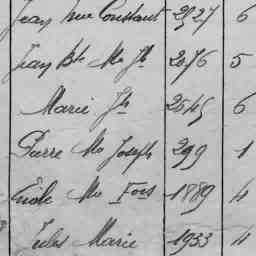 Jean Constant 2527 6
Jean Bte Me Jh 2076 5
Marie Jh 2545 6
Pierre Me Joseph 299 1
Me Fois 1789 4
Jules Marie 1933 4